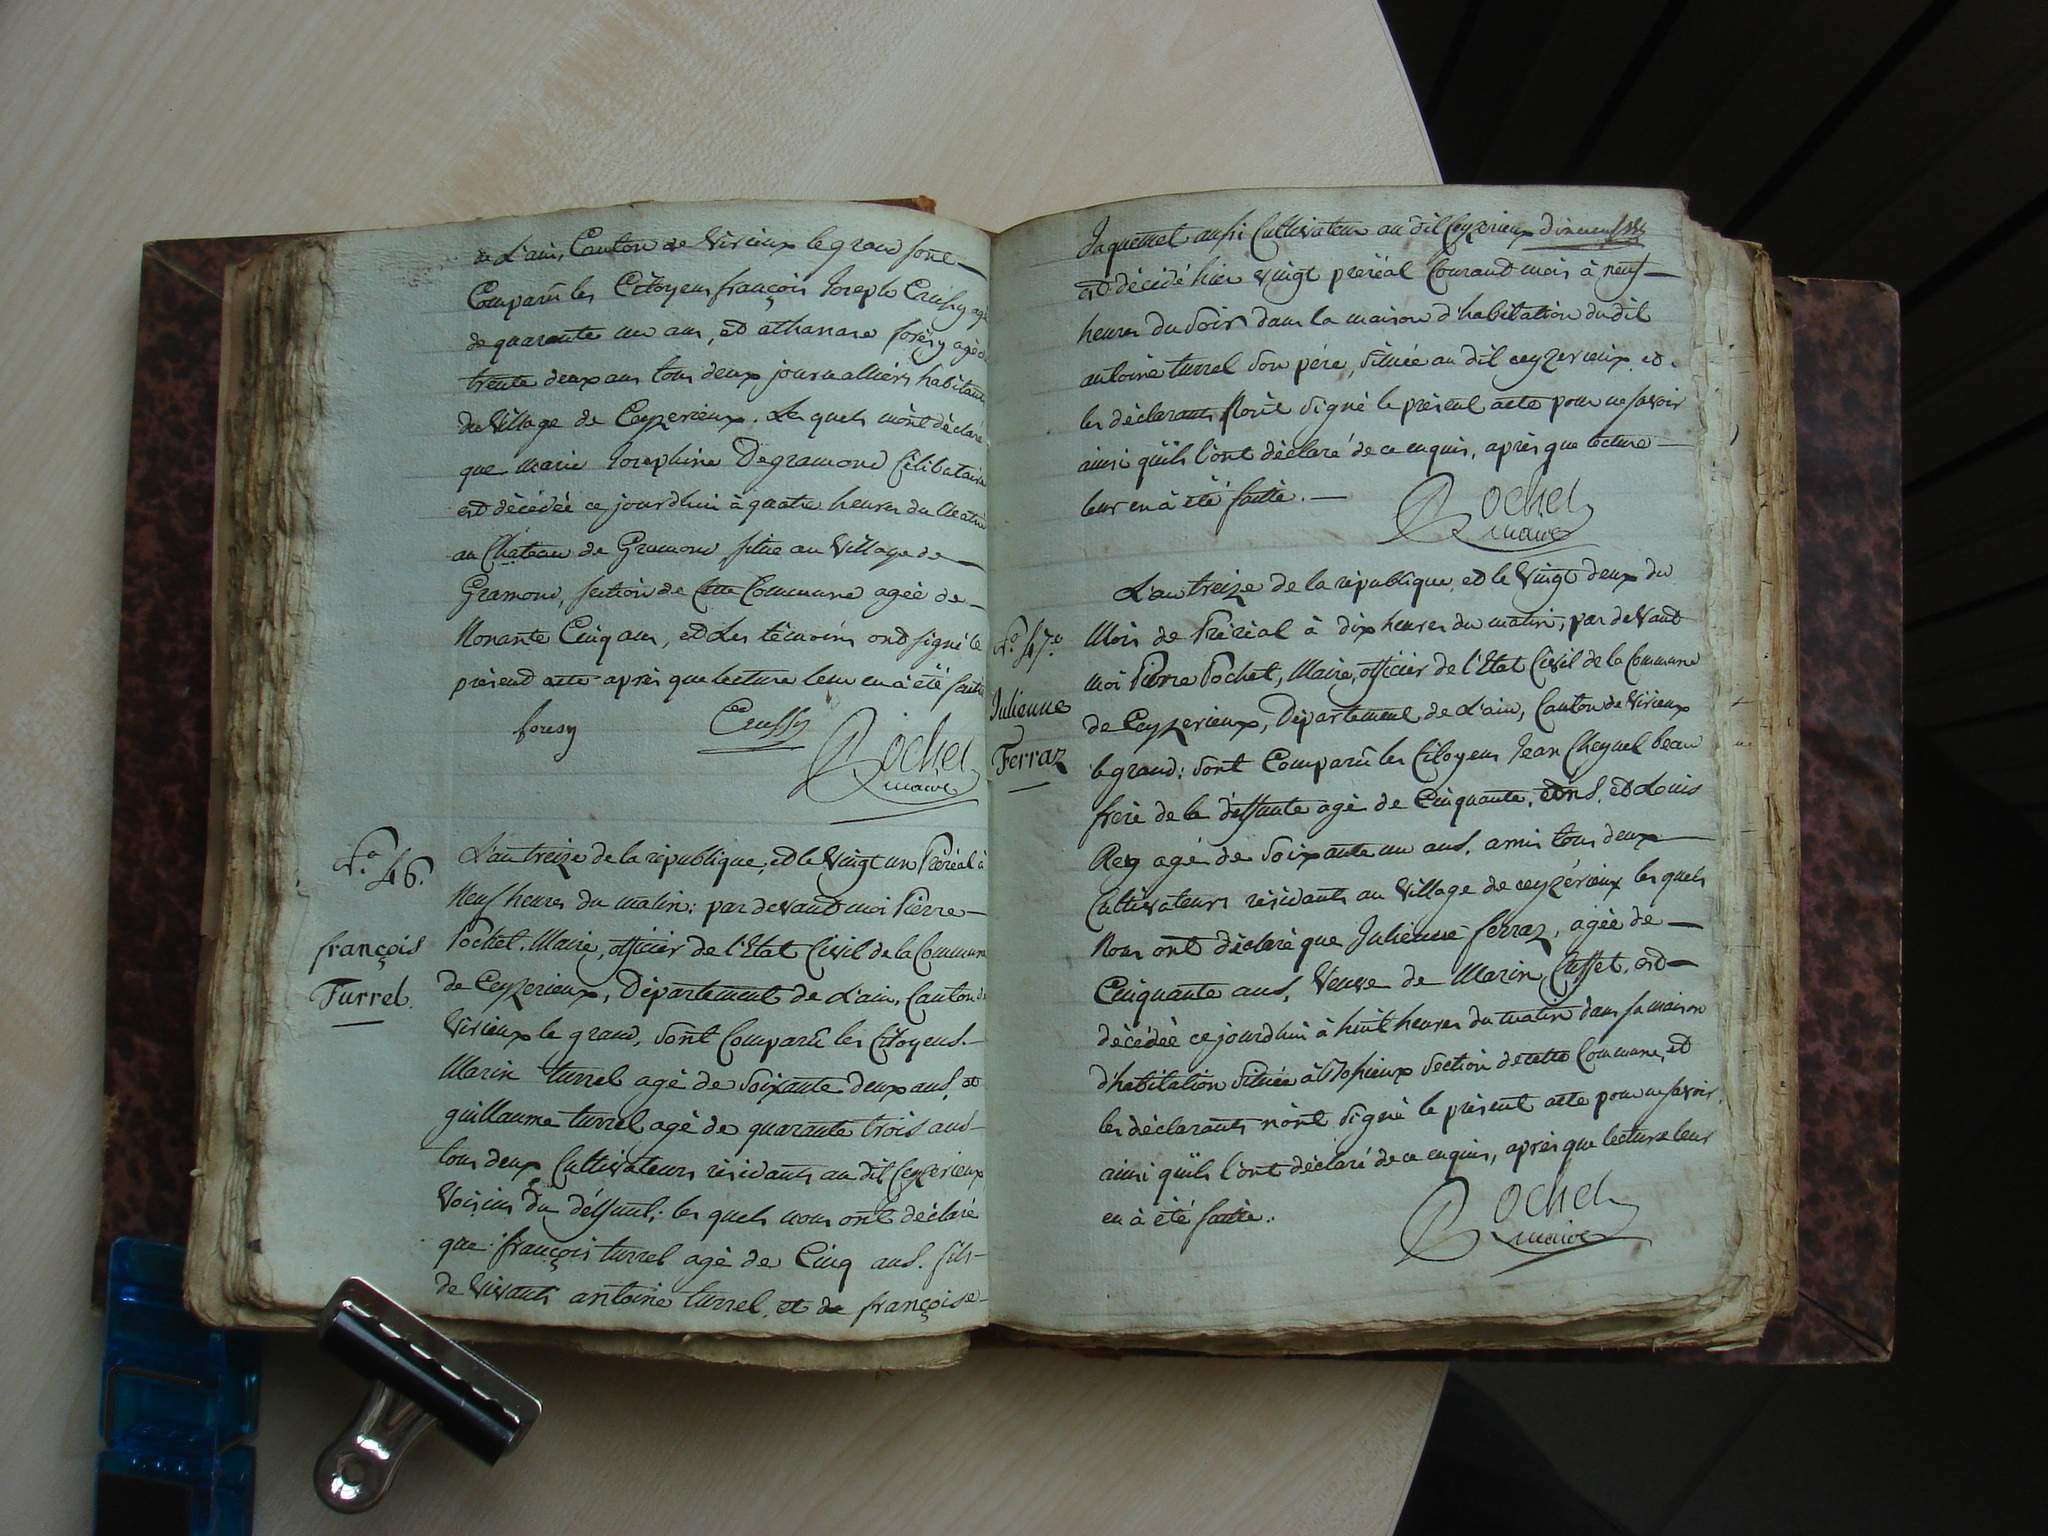 de L'ain, Canton de Virieux le grand sont
Comparû les Citoyens françois Joseph Crussy agé
de quarante un ans, et athanase foresy agé de
trente deux ans tous deux journalliers habitants
du Village de Ceyzerieux. Les quels m'ont déclaré
que marie Josephine Degramond Célibataire
est décédée ce jourdhui à quatre heures du Matin
au Château de Gramond situe au Village de
Gramond, section de Cette Commune agée de
Nonante Cinq ans, et Les témoins ont signé le
présent acte après que lecture leur en à été faitte
foresy Crussy
Pochet
maire
N.o 46.
françois
Turrel.
L'an treize de la république, et le Vingt un Préréal à
Neuf heures du matin: par devand moi Pierre
Pochet. Maire, officier de l'Etat Civil de la Commune
de Ceyzerieux, Département de L'ain, Canton de
Virieux le grand, sont Comparû les Citoyens.
Marin turrel agé de soixante deux ans, et
guillaume turrel agé de quarante trois ans
tous deux Cultivateurs résidants au dit Ceyzerieux
Voisins du déffunt; les quels nous ont déclaré
que françois turrel agé de Cinq ans. fils
de vivants antoine turrel, et de françoise
Jaquemet aussi Cultivateur au dit Ceyzerieux
est décédé hier vingt préréal Courant mois à neuf
heures du soir dans la maison d'habitation du dit
antoine turrel son père, située au dit ceyzerieux et.
les déclarants n'ont signé le présent acte pour ne savoir
ainsi qu'ils l'ont déclaré de ce enquis, après que lecture
leur en à été faitte.
Pochet
maire
N.o 47.o
Julienne
Ferraz
L'an treize de la république, et le Vingt deux du
Mois de Préréal à dix heures du matin; par devant
moi Pierre Pochet, Maire, officier de l'Etat Civil de la Commune
de Ceyzerieux, Département de L'ain, Canton de Virieux
le grand: sont Comparû les Citoyens Jean Cheynel beau
frère de la déffunte agé de Cinquante, ans, et Louis
Rey agé de soixante un ans. amis tous deux
Cultivateurs résidants au Village de ceyzérieux les quels
Nous ont déclaré que Julienne ferraz, agée de
Cinquante ans, Veuve de Marin Cusset, est
décédée ce jourdhui à huit heures du matin dans sa maison
d'habitation située à section de cette Commune, et
les déclarants n'ont signé le présent acte pour ne savoir,
ainsi qu'ils l'ont déclaré de ce enquis, après que lecture leur
en à été faitte.
Pochet
maire